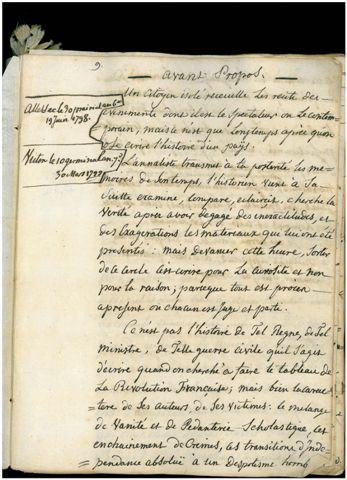 9.
— avant Propos. —
Un Citoyen isolé recueille les recits des
evenements dont il est le Spectateur ou le Contem-
porain, mais ce n'est que longtemps après qu'on
ose ecrire l'histoire d'un pays.
L'annaliste transmet à la posterité les me-
moires de son temps, l'historien vient à sa
suite examine, compare, eclaircit, cherche la
verité après avoir degagé des inexactitudes, et
des Exagerations les matereaux qui lui ont été
presentés : mais devancer cette heure, sortir
de ce cercle c'est ecrire pour la curiosité et non
pour la raison; parceque tout est procès
apresent ou chacun est Juge et partie.
Ce n'est pas l'histoire de Tel Regne, de Tel
ministre, de Telle guerre civile qu'il s'agit
d'écrire quand on cherche à faire le tableau de
La Revolution Francaise; mais bien le carac-
= tere de ses auteurs, de ses victimes : le melange
de Vanité et de Pedanterie Scholastique, les
enchainement de Crimes, les transitions d'inde
= pendance absolue à un Despotisme
le 30 prairial an 6e
19 juin 1798.
le 10 germinal an 7e
30 Mars 1799